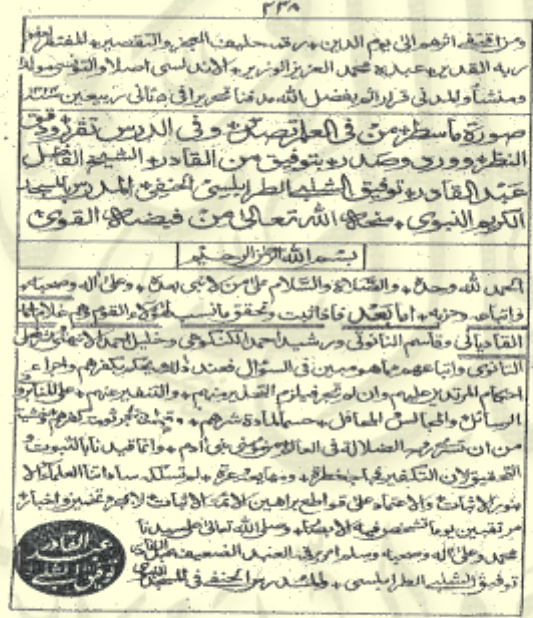 ٢٣٨
ومن اقتفى اثرهم الى يوم الدين رقمه حليف العجز والتقصير المفتقر لعفو
ربه القدير عبده محمد العزيز الوزير الاندلسي اصلا والتونسي مولدا
ومنشأ والمدني قرارا بفضل الله مدفنا تحريرا في ثاني ربيعين
صورة ما سطره من في العلم تصدر وفي الدرس تقرر ودقق
النظر وورد وصدر بتوفيق من القادر الشيخ الفاضل
عبد القادر توفيق الشلبي الطرابلسي الحنفي المدرس بالمسجد
الكريم النبوي منحه الله تعالى من فيضه القوي
بسم الله الرحمن الرحيم
الحمد لله وحده والصلاة والسلام على من لا نبي بعده وعلى اله وصحبه
واتباعه وحزبه اما بعد فاذا ثبت وتحقق ما نسب لهؤلاء القوم وهم غلام احمد
القادياني وقاسم النانوتوي ورشيد احمد الكنكوهي وخليل احمد الانبهتي واشرف علي
التانوي واتباعهم مما هو مبين في السؤال فعند ذلك يحكم بكفرهم واجراء
احكام المرتدين عليهم وان لم تجر فيلزم التحذير منهم والتنفير عنهم على المنابر وفي
الرسائل والمجالس والمحافل حسما لمادة شرهم وقطعا لجرثومة كفرهم وخشية
من ان تسري ضلالة في العالم من بني ادم وانما قيدنا بالثبوت
التحقيق لان التكفير فجاجه خطرة ومهايعه وعرة لم تسلك ساداتنا العلماء الا
بنور الاثبات والاعتماد على قواطع براهين الائمة الاثبات لا بمجرد تخمين واخبار
مرتقبين يوما تشخص فيه الابصار وصلى الله تعالى على سيدنا
محمد وعلى اله وصحبه وسلم امر برقمه العبد الضعيف عبد القادر
توفيق الشلبي الطرابلسي المدرس الحنفي في المسجد النبوي